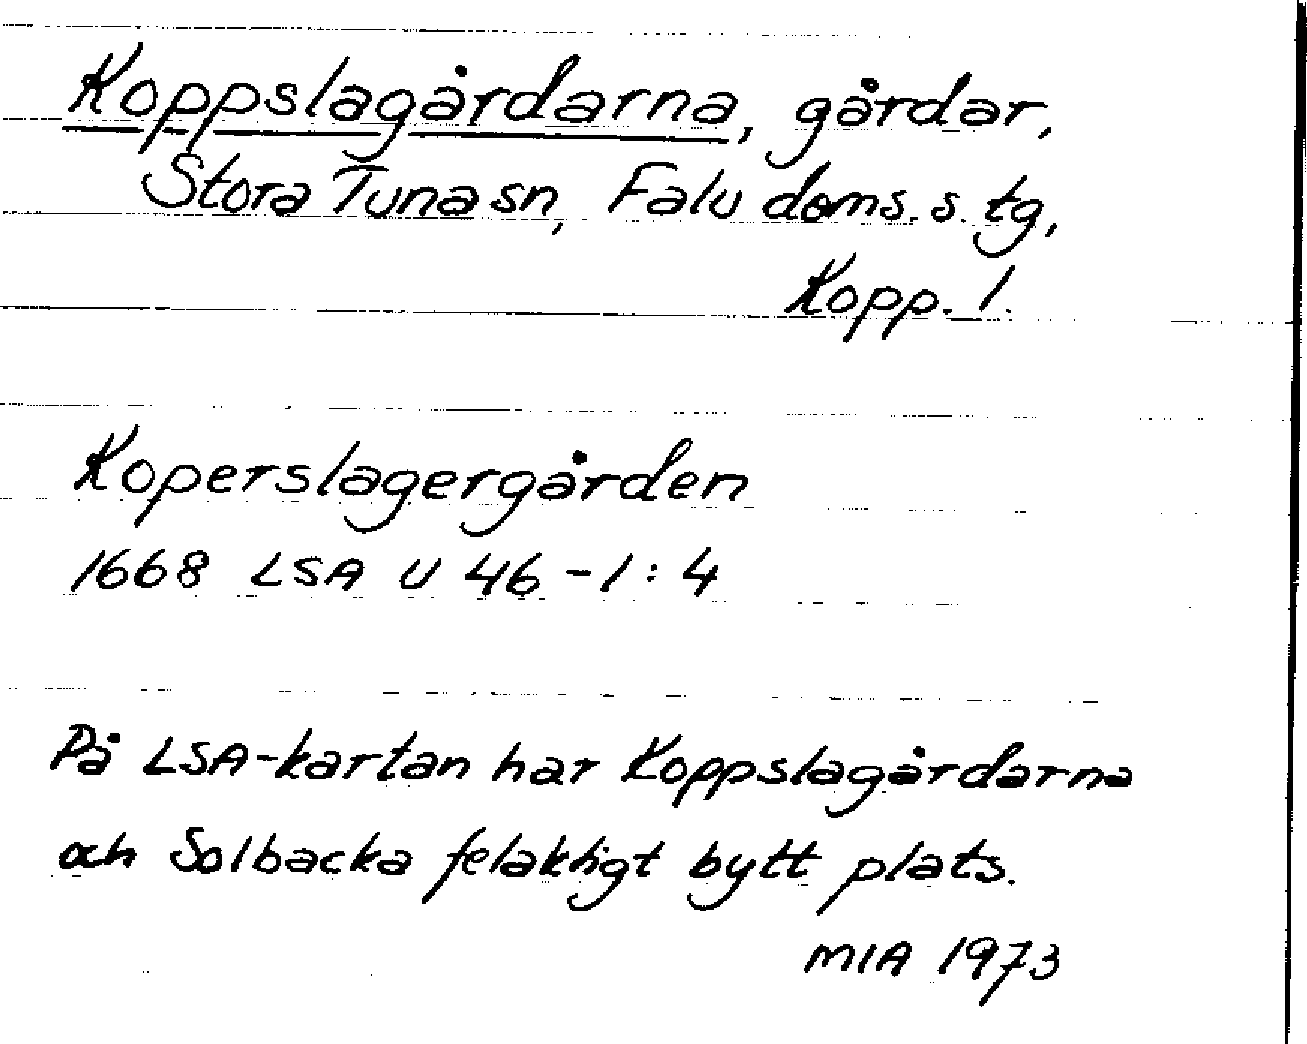 Koppslagårdarna, gårdar,
Stora Tuna sn, Falu doms. s. tg,
Kopp. l.
Koperslagergården
1668 LSA U 46-1:4
På LSA-kartan har Koppslagårdarna
och Solbacka felaktigt bytt plats.
MIA 1973